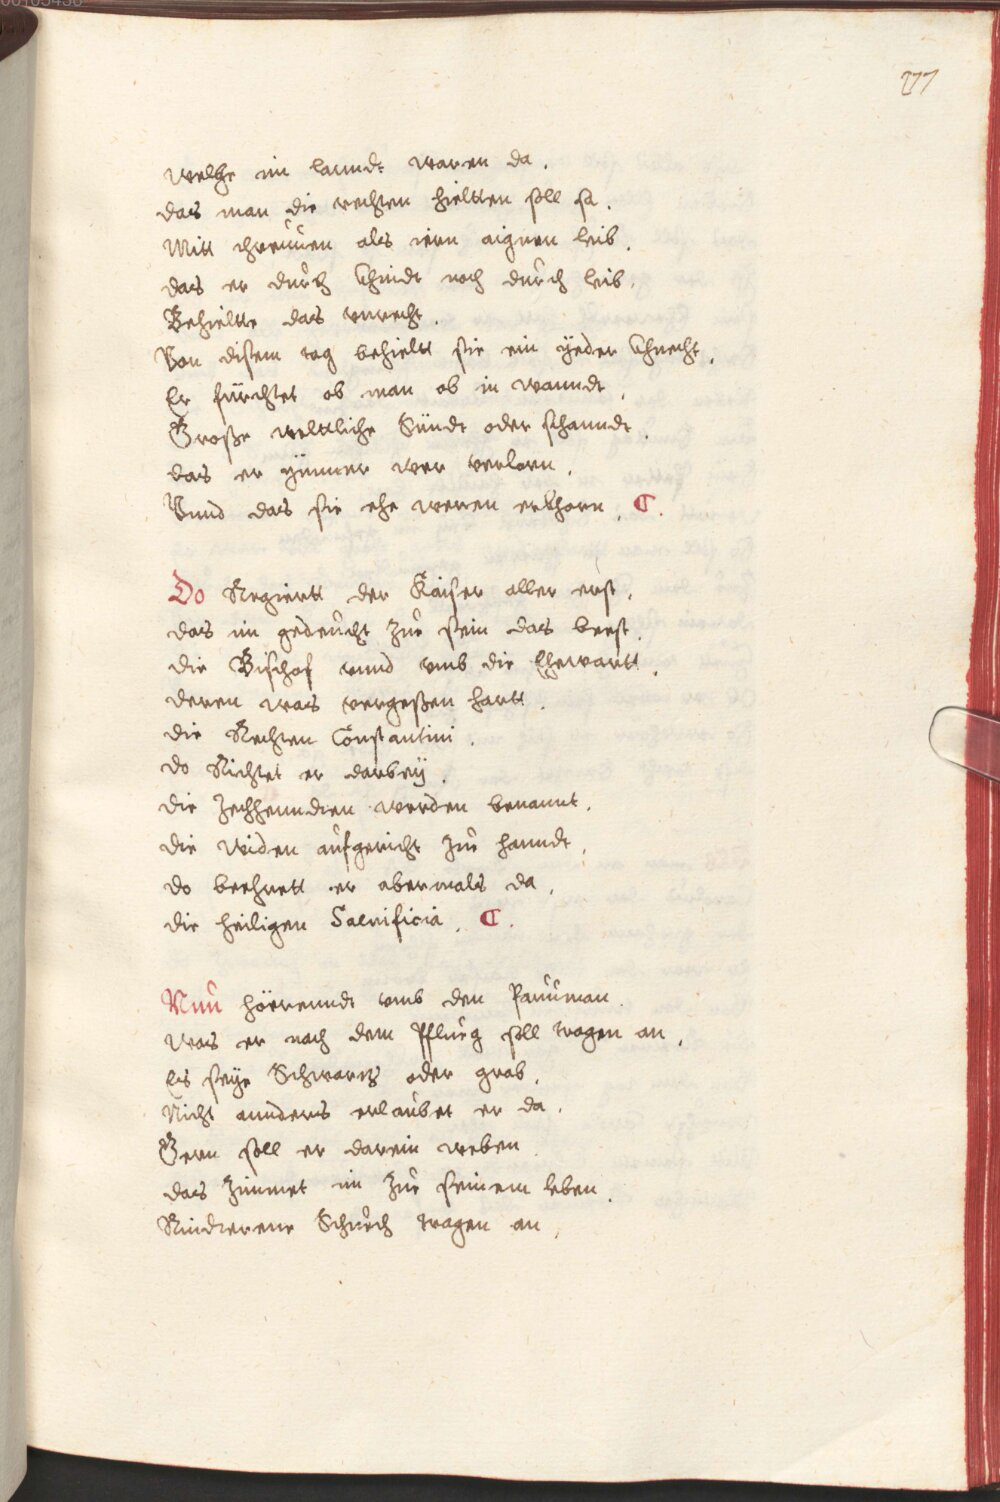 00105436
177
welche im lanndt waren da.
das man die rechten hieltten soll sa.
Mitt threuuen als iren aignen leib.
das er durch khindt noch durch leib.
Behieltte das vnrecht.
Von disem tag behieltt sie ein yeder khnecht.
Er fürchtet ob man ob in wanndt.
Große weltliche Sündt oder schanndt.
das er ymmer wer verlorn.
Vnnd das sie ehe weren erkhorn. C.
Do Regiertt der Kaiser aller erst.
das im gedeucht zue sein das beest.
die Bischof vnnd vmb die Ehewartt.
deren was vergeßen hartt.
die Rechten Constantini.
do Richtet er darbeÿ.
die Zechhenndten werden benannt.
die widen aufgericht zue hanndt.
do beehrett er abermals da.
die heiligen Sacrificia. C.
Nun hörenndt vmb den Pauuman.
was er nach dem Pflueg soll tragen an.
Es seÿe Schwartz oder grab.
Nicht annders erlaubet er da.
Geren soll er darein weben.
das Zimmet im zue seinem leben.
Rindterene Schuech tragen an.